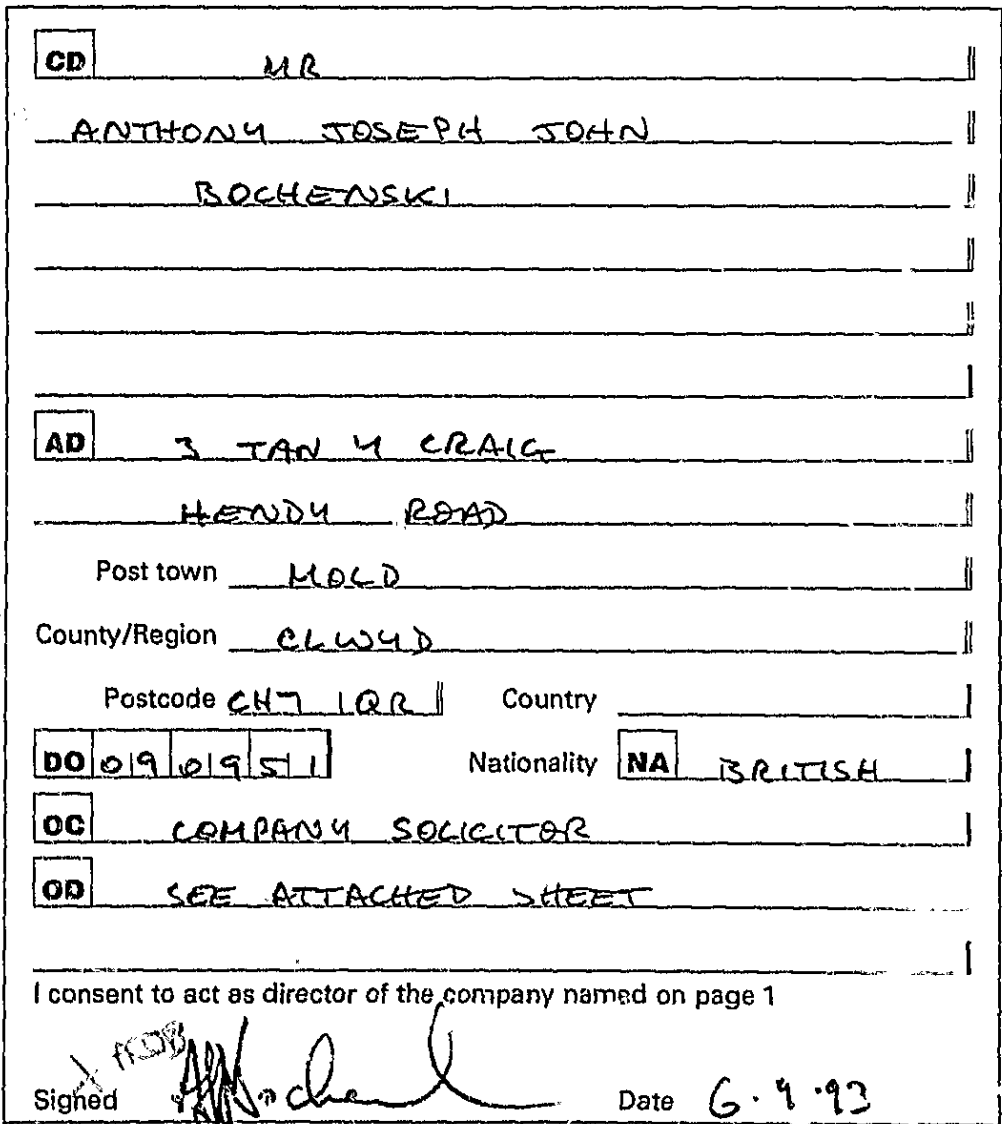 CD MR
ANTHONY JOSEPH JOHN
BOCHENSKI
AD 3 TAN Y CRAIG
HENDY ROAD
Post town MOLD
County/Region CLWYD
Postcode CH7 1QR Country
DO 09 09 51 Nationality NA BRITISH
OC COMPANY SOLICITOR
OD SEE ATTACHED SHEET
I consent to act as director of the company named on page 1
Signed Date 6.9.93